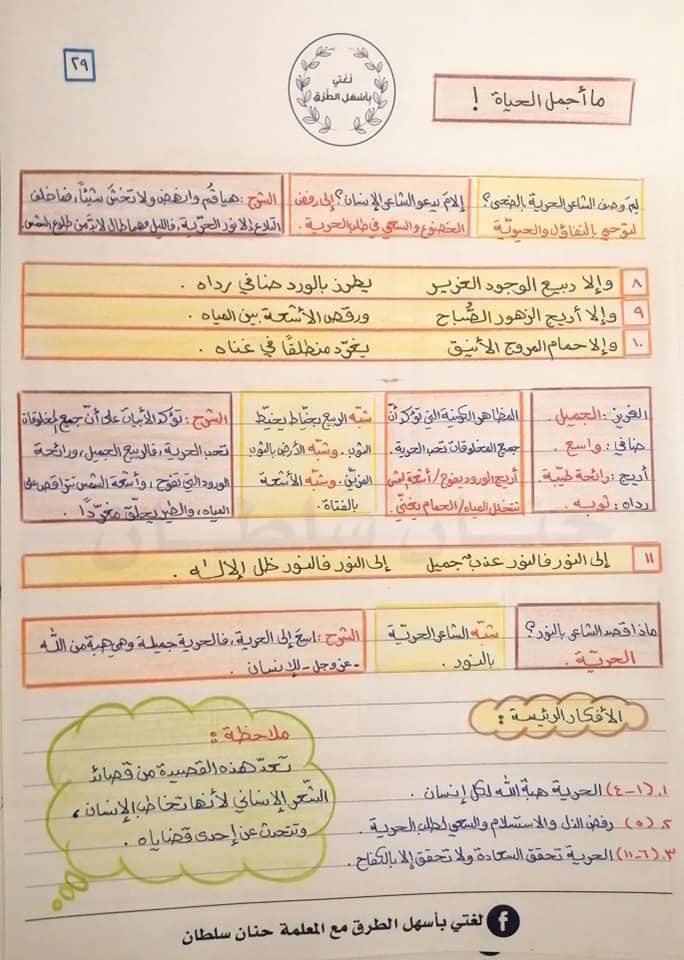 ٢٩
لغتي
بأسهل الطرق
ما أجمل الحياة !
لِمَ وصف الشاعر الحرية بالضحى؟
ليوحي بالتفاؤل والحيويّة
إلامَ يدعو الشاعر الإنسان؟ إلى رفض
الخضوع والسعي في طلب الحرية.
الشرح: هيا قُم وانهض ولا تخشَ شيئاً، فما خلف
التلاع إلا نور الحرّية، فالليل مهما طال لابدّ من طلوع الشمس
٨ وإلا ربيع الوجود الغرير يطرز بالورد ضافي رداه .
٩ وإلا أريج الزهور الصُّباح ورقص الأشعة بين المياه .
١٠ وإلا حمام المروج الأنيق يغرّد منطلقًا في غناه .
الغرير: الجميل.
ضافي: واسع .
أريج: رائحة طيّبة
رداه: ثوبه .
المظاهر الكونية التي تؤكد أنّ
جميع المخلوقات تحب الحرية.
أريج الورود يفوح/ أشعة الشمس
تتخلل المياه/ الحمام يغنّي.
شبّه الربيع بخيّاط يخيّط
الثوب. وشبّه الأرض بالثوب
المزيّن. وشبّه الأشعة
بالفتاة.
الشرح: تؤكد الأبيات على أنّ جميع المخلوقات
تحب الحرية، فالربيع الجميل، ورائحة
الورود التي تفوح، وأشعة الشمس تتراقص على
المياه، والطير يحلّق مغرّدًا.
حنان سلطان
١١ إلى النور فالنور عذبٌ جميل إلى النور فالنور ظل الإلاه .
ماذا قصد الشاعر بالنور؟
الحريّة .
شبّه الشاعر الحريّة
بالنور .
الشرح: اسعَ إلى الحرية، فالحرية جميلة وهي هبة من الله
- عزوجل - للإنسان.
الأفكار الرئيسة :
١. (١-٤) الحرية هبة الله لكل إنسان .
٢. (٥) رفض الذل والاستسلام والسعي لطلب الحرية .
٣. (٦-١١) الحرية تحقق السعادة ولا تحقق إلا بالكفاح.
ملاحظة :
تعدّ هذه القصيدة من قصائد
الشّعر الإنساني لأنها تخاطب الإنسان،
وتتحدث عن إحدى قضاياه .
لغتي بأسهل الطرق مع المعلمة حنان سلطان